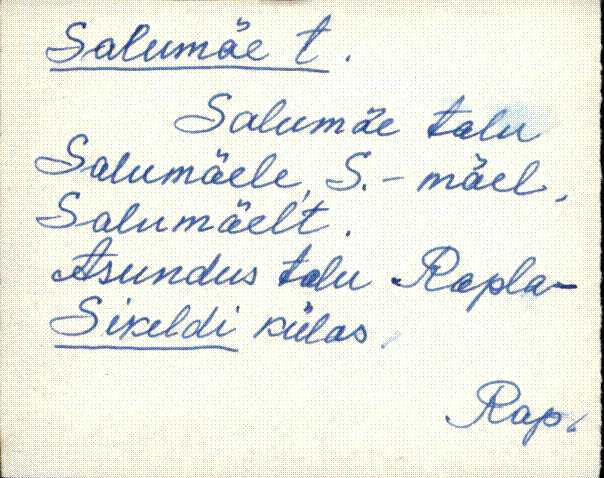 Salumäe t.
Salumäe talu
Salumäele, S.-mäel,
Salumäelt.
Asundus talu Rapla-
Sikeldi külas.
Rap.